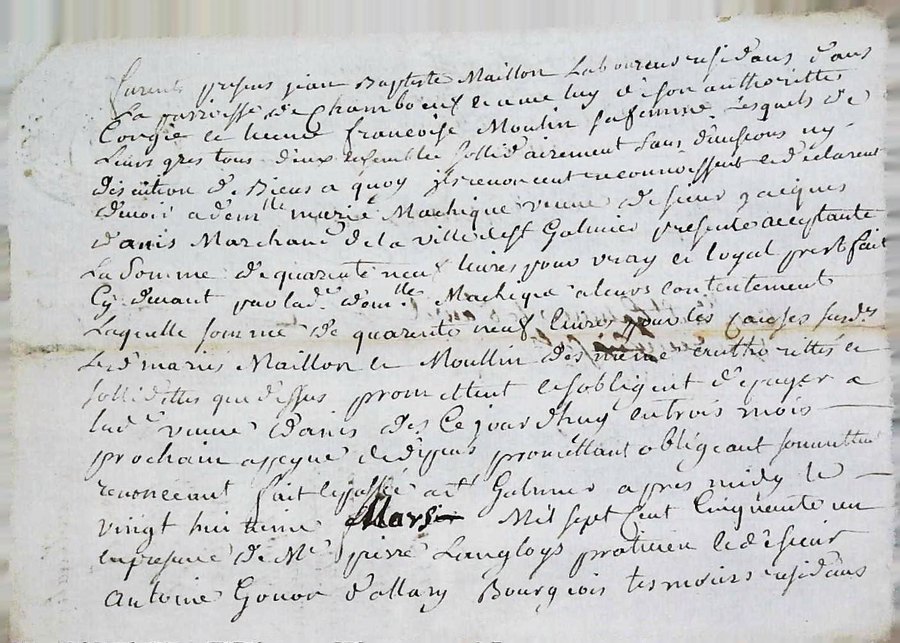 furent presens jean Baptiste Maillon Laboureur residans dans
La parroisse de Chamboeuf et avec luy de son authorittes
Congie et licence francoise Moulin sa femme Lesquels de
Leurs gres tous deux ensemble sollidairement sans divisions ny
discution de Biens a quoy ils renoncent reconnoissent et declarent
devoir a dem.lle marie Machique veuve de sieur jacques
danis Marchand de la ville de st Galmier presente acceptante
La Somme de quarente neuf livres pour vray et loyal prest fait
Cy devant par lad.e dem.lle Machique aleurs contentement
Laquelle somme de quarente neuf livres pour les causes susd.es
Les d maries Maillon et Moullin des meme authorittes et
sollidittes que dessus promettent et sobligent de payer a
lad.e veuve danis des Ce jourdhuy en trois mois
prochain a peyne de depens promettant obligeant soumettant
renonceant fait et passé a st Galmier apres midy le
vingt huitieme Mars Mil sept Cent Cinquente un
en presence de M.e pierre Langloys praticien et de sieur
Antoine Gonon dallary Bourgeois tesmoins residans